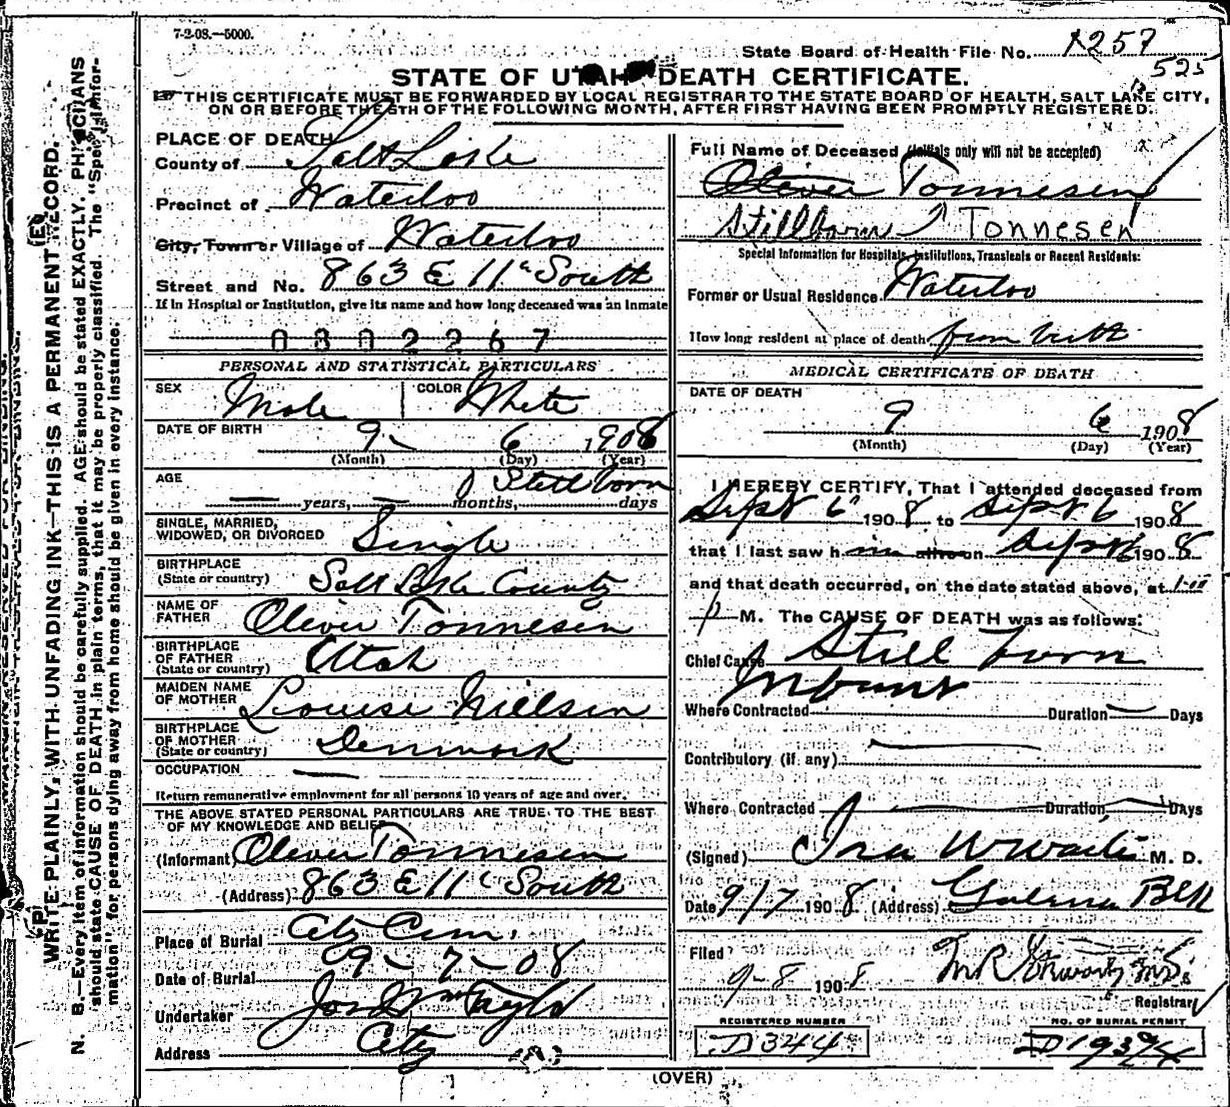 7-2-08.—5000.
State Board of Health File No. 1257
525
STATE OF UTAH DEATH CERTIFICATE.
THIS CERTIFICATE MUST BE FORWARDED BY LOCAL REGISTRAR TO THE STATE BOARD OF HEALTH, SALT LAKE CITY,
ON OR BEFORE THE 5TH OF THE FOLLOWING MONTH, AFTER FIRST HAVING BEEN PROMPTLY REGISTERED.
PLACE OF DEATH
County of Salt Lake
Precinct of Waterloo
City, Town or Village of Waterloo
Street and No. 863 E 11" South
If in Hospital or Institution, give its name and how long deceased was an inmate
0302267
PERSONAL AND STATISTICAL PARTICULARS
SEX Male COLOR White
DATE OF BIRTH 9- 6 1908
(Month) (Day) (Year)
AGE Still born
— years, — months, days
SINGLE, MARRIED,
WIDOWED, OR DIVORCED Single
BIRTHPLACE
(State or country) Salt Lake County
NAME OF
FATHER Oliver Tonnesen
BIRTHPLACE
OF FATHER
(State or country) Utah
MAIDEN NAME
OF MOTHER Louise Nielsen
BIRTHPLACE
OF MOTHER
(State or country) Denmark
OCCUPATION —
Return remunerative employment for all persons 10 years of age and over.
THE ABOVE STATED PERSONAL PARTICULARS ARE TRUE TO THE BEST
OF MY KNOWLEDGE AND BELIEF
(Informant) Oliver Tonnesen
(Address) 863 E 11" South
Place of Burial City Cem.
Date of Burial 9-7-08
Undertaker Jos Wm Taylor
Address City
Full Name of Deceased (Initials only will not be accepted)
Oliver Tonnesen
Stillborn Tonnesen
Special Information for Hospitals, Institutions, Transients or Recent Residents:
Former or Usual Residence Waterloo
How long resident at place of death from birth
MEDICAL CERTIFICATE OF DEATH
DATE OF DEATH
9 6 1908
(Month) (Day) (Year)
I HEREBY CERTIFY, That I attended deceased from
Sept 6" 1908 to Sept 6 1908
that I last saw him alive on Sept 6 1908
and that death occurred, on the date stated above, at
P M. The CAUSE OF DEATH was as follows:
Chief Cause Still born
Where Contracted Duration — Days
Contributory (if any)
Where Contracted Duration Days
(Signed) Ira M. D.
Date 9/7 1908 (Address) Galena Blk
Filed
9-8 1908 M R Stewart M.D.
Registrar
REGISTERED NUMBER
D344
NO. OF BURIAL PERMIT
(OVER)
WRITE PLAINLY, WITH UNFADING INK—THIS IS A PERMANENT RECORD.
N. B.—Every item of information should be carefully supplied. AGE should be stated EXACTLY. PHYSICIANS
should state CAUSE OF DEATH in plain terms, that it may be properly classified. The "Special Infor-
mation" for persons dying away from home should be given in every instance.